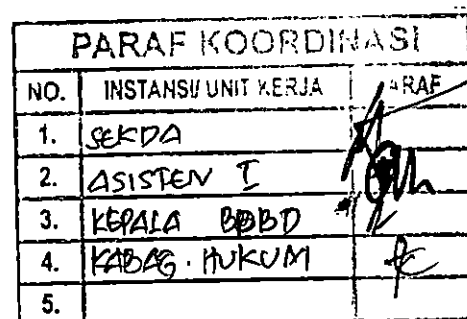 PARAF KOORDINASI
NO. INSTANSI/ UNIT KERJA PARAF
1. SEKDA
2. ASISTEN I
3. KEPALA BPBD
4. KABAG. HUKUM
5.